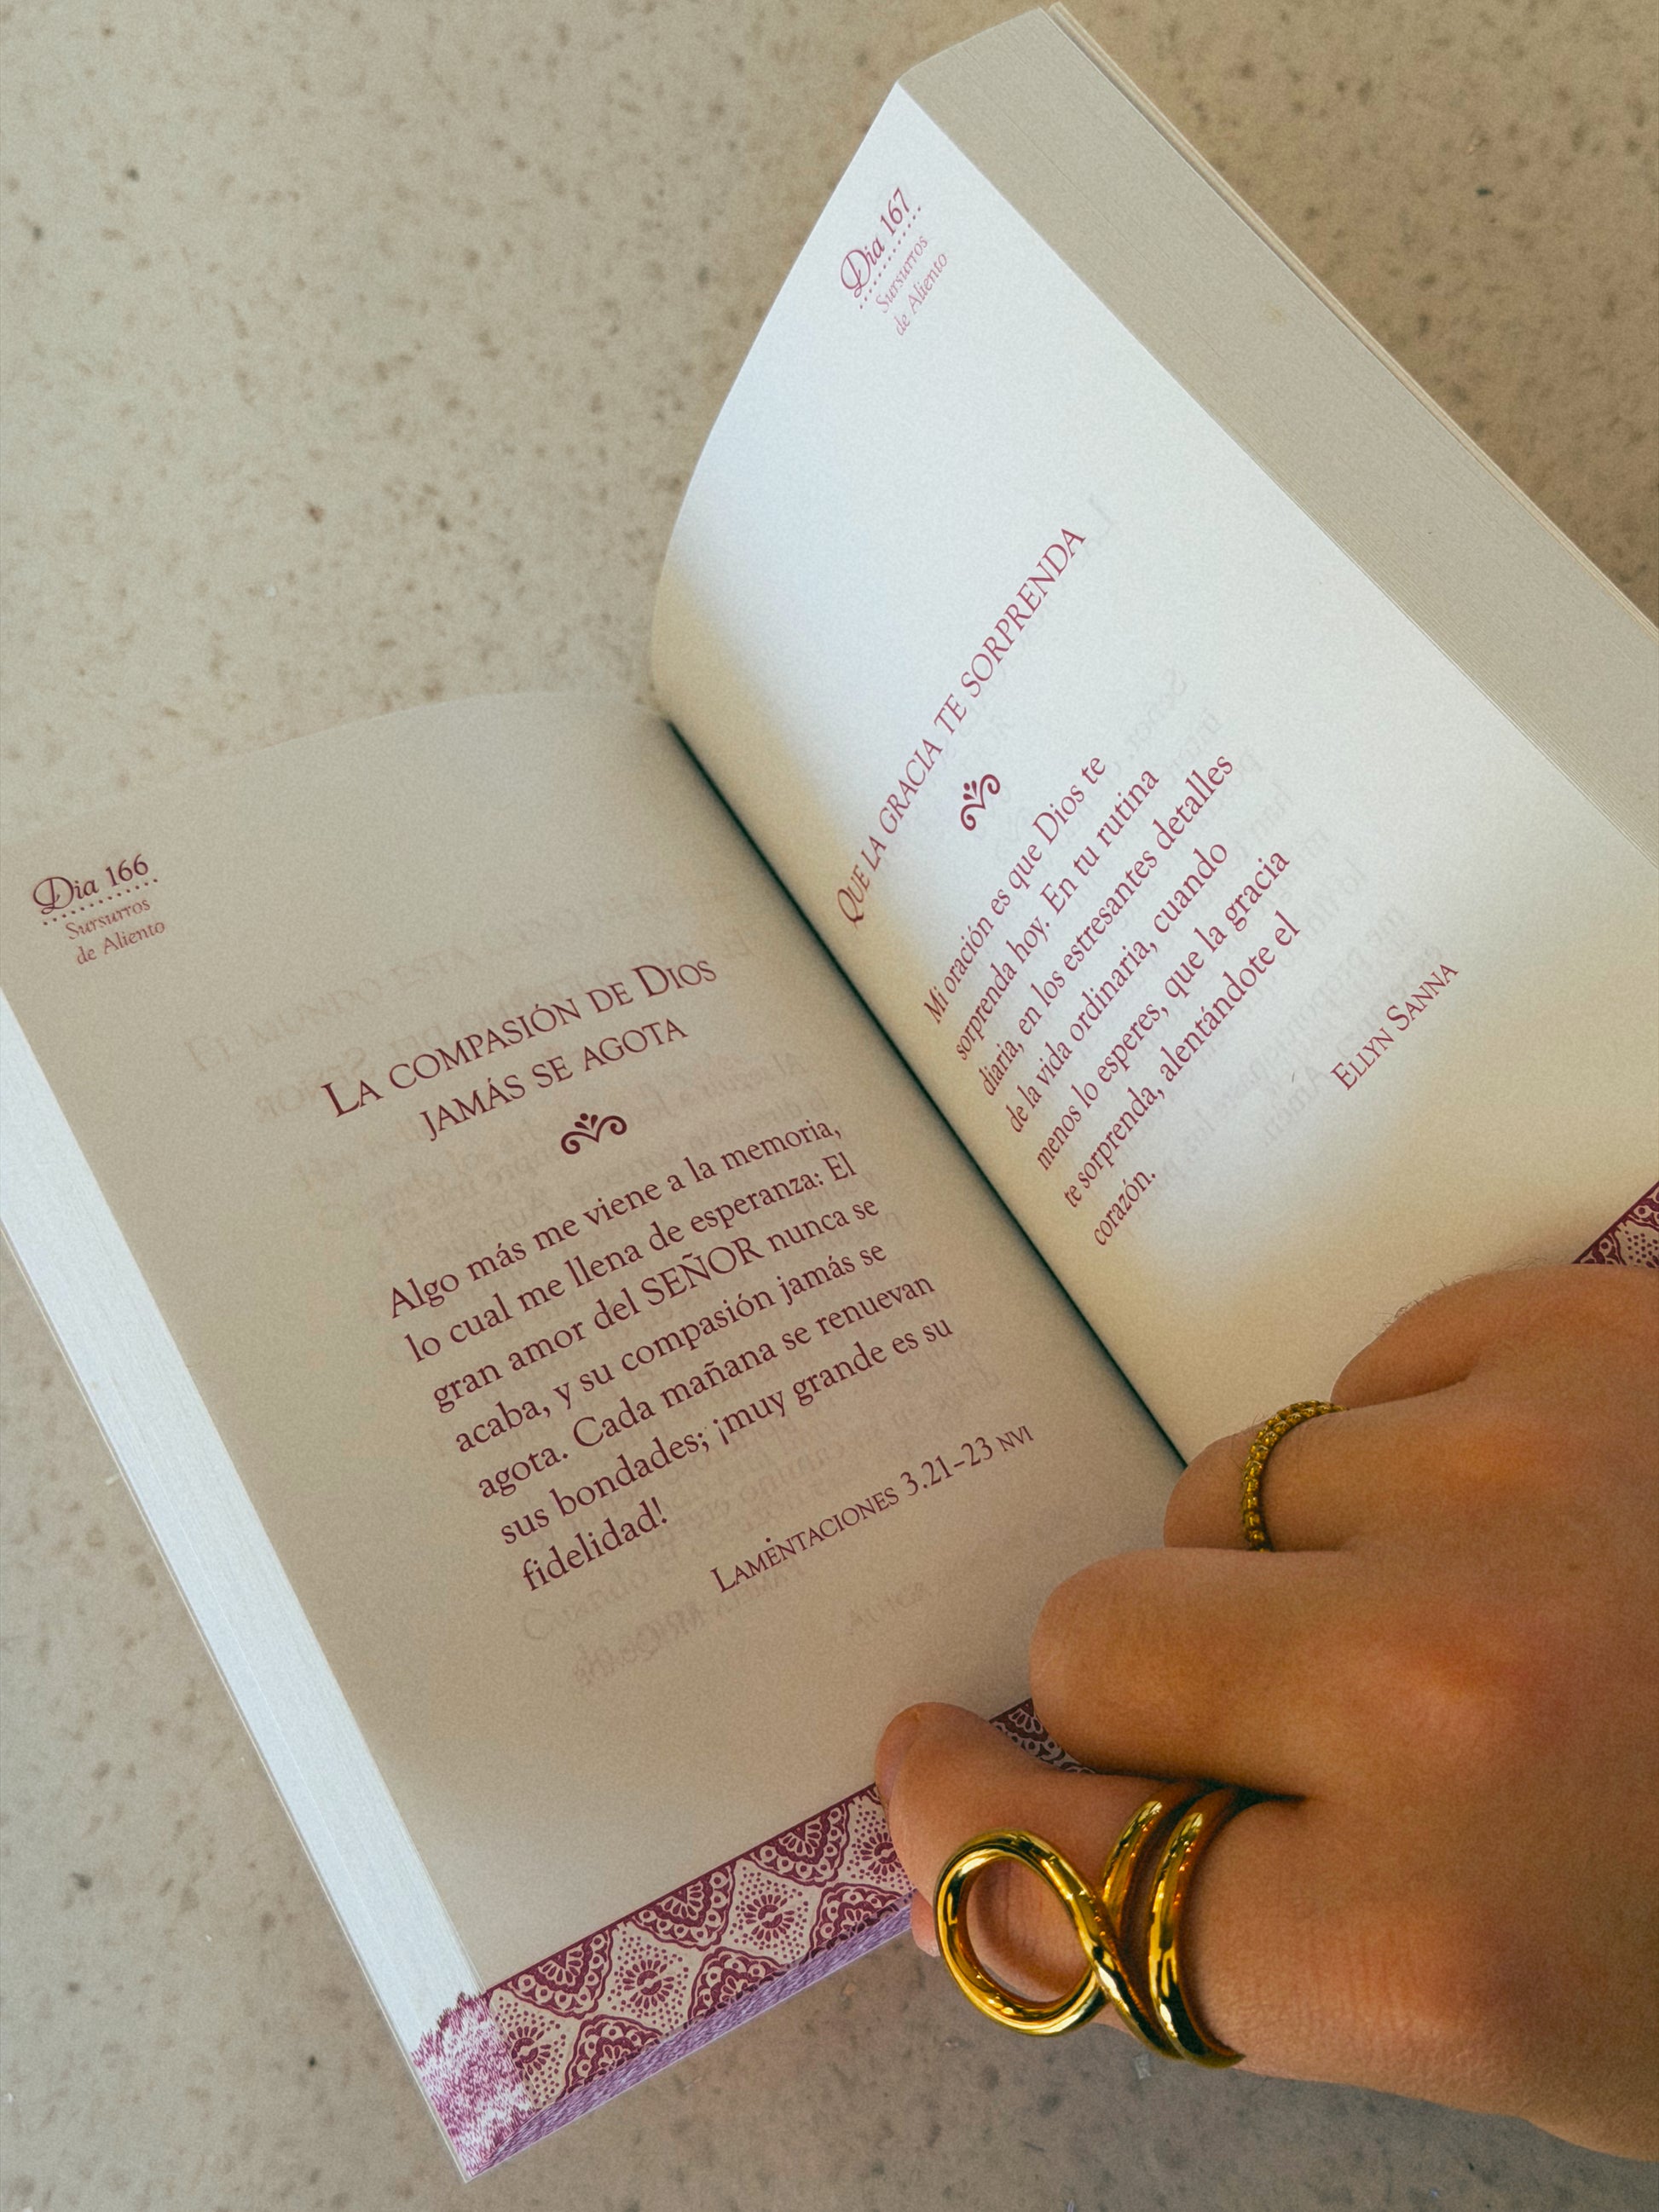 Dia 166
Sursurros
de Aliento
La compasión de Dios
jamás se agota
Algo más me viene a la memoria,
lo cual me llena de esperanza: El
gran amor del SEÑOR nunca se
acaba, y su compasión jamás se
agota. Cada mañana se renuevan
sus bondades; ¡muy grande es su
fidelidad!
Lamentaciones 3.21–23 NVI
Dia 167
Sursurros
de Aliento
Que la gracia te sorprenda
Mi oración es que Dios te
sorprenda hoy. En tu rutina
diaria, en los estresantes detalles
de la vida ordinaria, cuando
menos lo esperes, que la gracia
te sorprenda, alentándote el
corazón.
Ellyn Sanna